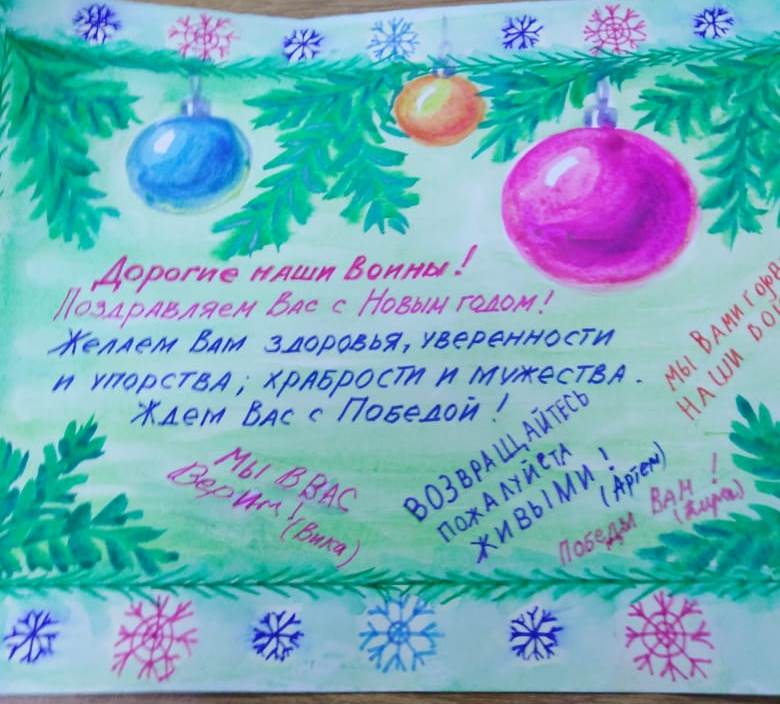 Дорогие наши Воины!
Поздравляем Вас с Новым годом!
Желаем Вам здоровья, уверенности
и упорства, храбрости и мужества.
Ждем Вас с Победой!
Мы в Вас
Верим!
(Вика)
ВОЗВРАЩАЙТЕСЬ
ПОЖАЛУЙСТА
ЖИВЫМИ!
(Артем)
МЫ ВАМИ
НАШИ
Победы ВАМ!